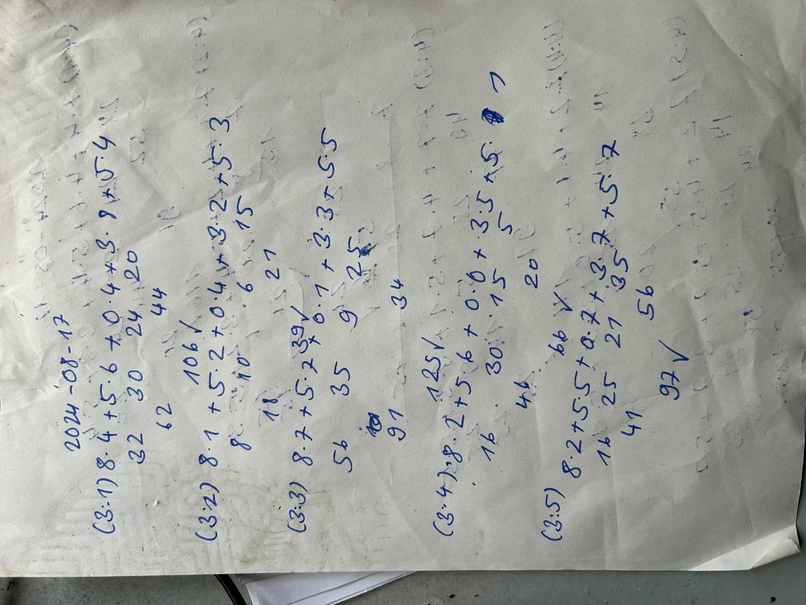 2024-08-17
(3:1) 8·4+5·6+0·4+3·8+5·4
32 30 24 20
62 44
106✓
(3:2) 8·1+5·2+0·4+3·2+5·3
8 10 6 15
18 21
39✓
(3:3) 8·7+5·7+0·1+3·3+5·5
56 35 9 25
91 34
125✓
(3:4) 8·2+5·6+0·0+3·5+5·1
16 30 15 5
46 20
66✓
(3:5) 8·2+5·5+0·7+3·7+5·7
16 25 21 35
41 56
97✓